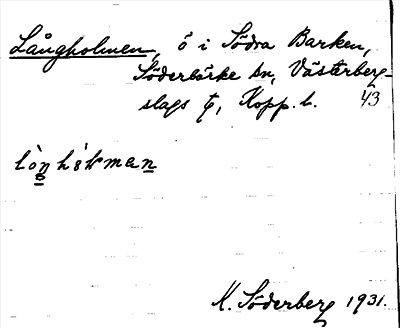 Långholmen, ö i Södra Barken,
Söderbärke sn, Västerberg-
slags tg, Kopp. l. 43
M. Söderberg 1931.